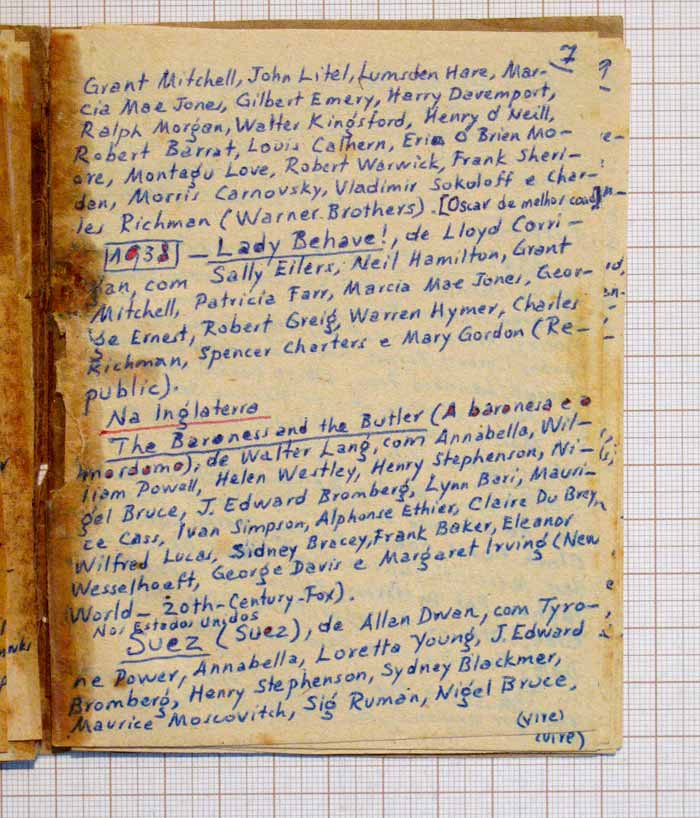 7
Grant Mitchell, John Litel, Lumsden Hare, Mar-
cia Mae Jones, Gilbert Emery, Harry Davemport,
Ralph Morgan, Walter Kingsford, Henry O'Neill,
Robert Barrat, Louis Calhern, Erin O'Brien Mo-
ore, Montagu Love, Robert Warwick, Frank Sheri-
dan, Morris Carnovsky, Vladimir Sokoloff e Char-
les Richman (Warner Brothers). [Oscar de melhor coad]
1938 — Lady Behave!, de Lloyd Corri-
gan, com Sally Eilers, Neil Hamilton, Grant
Mitchell, Patricia Farr, Marcia Mae Jones, Geor-
ge Ernest, Robert Greig, Warren Hymer, Charles
Richman, Spencer Charters e Mary Gordon (Re-
public).
Na Inglaterra
The Baroness and the Butler (A baronesa e o
mordomo), de Walter Lang, com Annabella, Wil-
liam Powell, Helen Westley, Henry Stephenson, Ni-
gel Bruce, J. Edward Bromberg, Lynn Bari, Mauri-
ce Cass, Ivan Simpson, Alphonse Ethier, Claire Du Brey,
Wilfred Lucas, Sidney Bracey, Frank Baker, Eleanor
Wesselhoeft, George Davis e Margaret Irving (New
World - 20th-Century-Fox).
Nos Estados Unidos
Suez (Suez), de Allan Dwan, com Tyro-
ne Power, Annabella, Loretta Young, J. Edward
Bromberg, Henry Stephenson, Sydney Blackmer,
Maurice Moscovitch, Sig Ruman, Nigel Bruce,
(vire)
(vire)